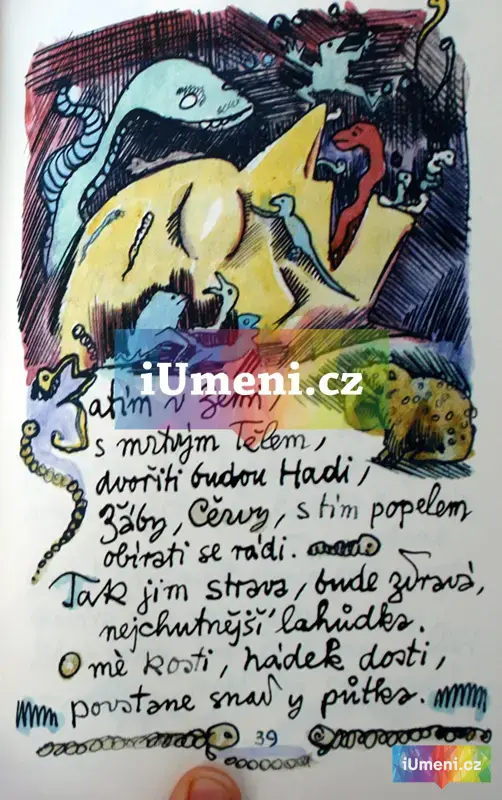 iUmeni.cz
Zatím v zemi,
s mrtvým Tělem,
dvořiti budou Hadi,
Žáby, Cěrvy, s tím popelem
obírati se rádi.
Tak jim strava, bude zdravá,
nejchutnější lahůdka.
O mè kosti, hádek dosti,
povstane snad y půtka.
39
iUmeni.cz